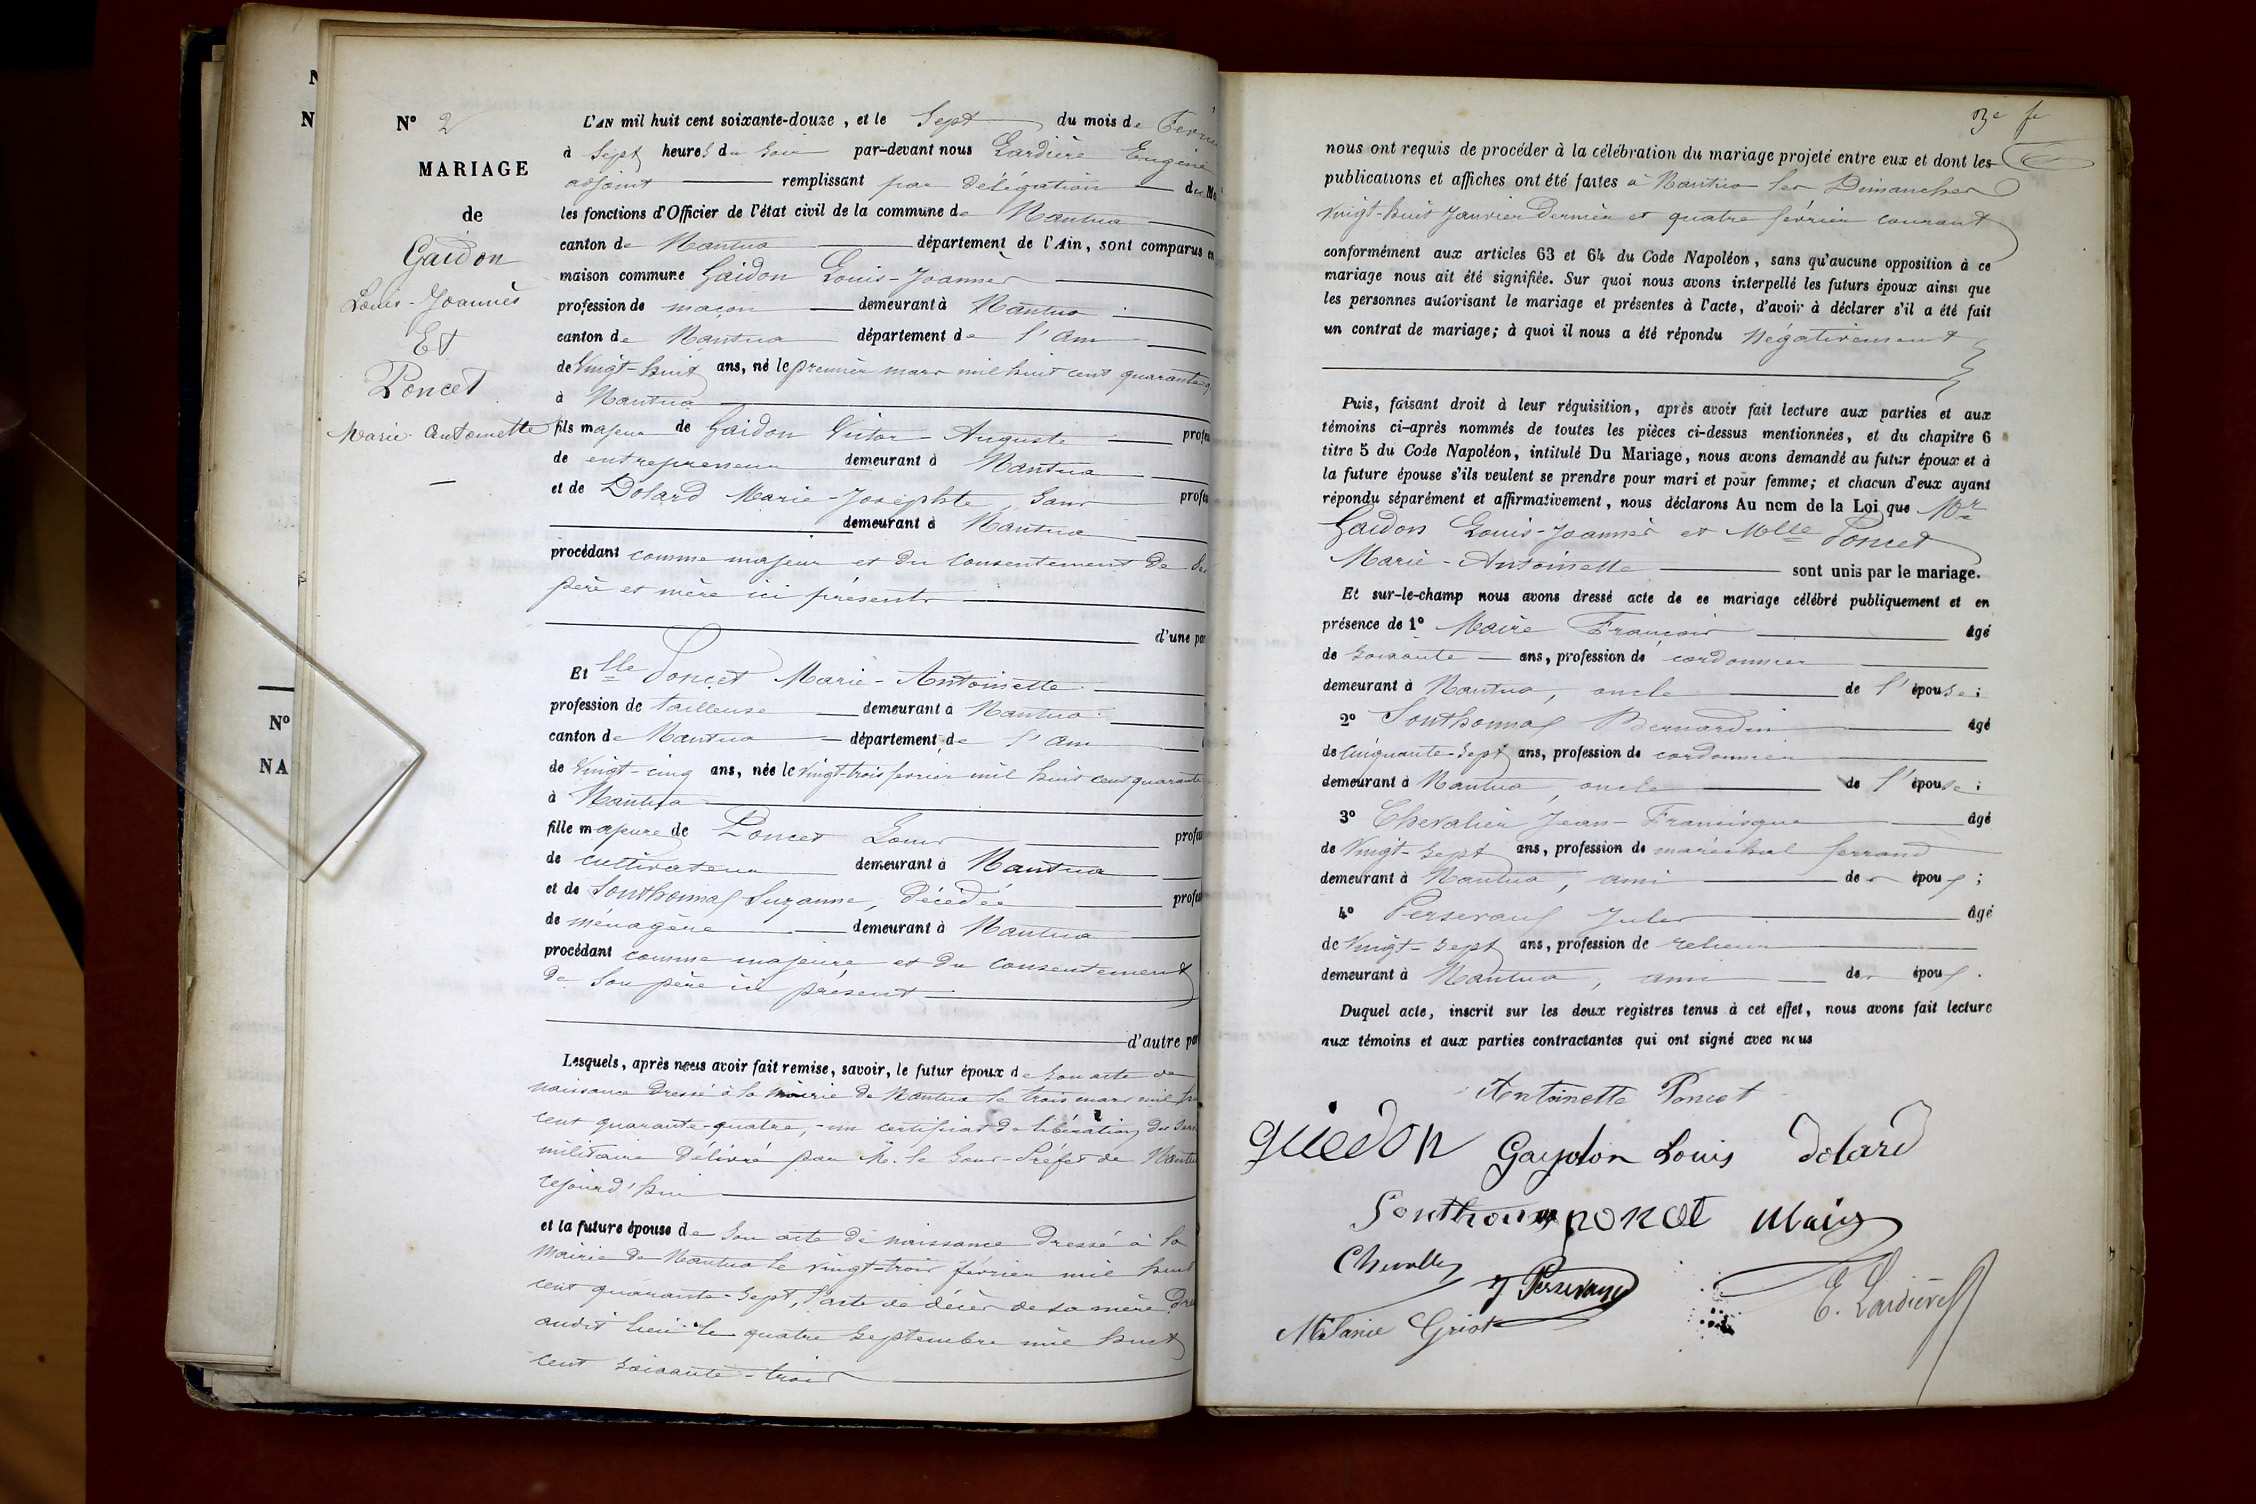 N° 2
MARIAGE
de
Gaidon
Louis-Joannès
Et
Poncet
Marie-Antoinette
L'AN mil huit cent soixante-douze, et le Sept du mois de
à Sept heures du Soir par-devant nous Lardière Eugène
adjoint remplissant par délégation du
les fonctions d'Officier de l'état civil de la commune de Nantua
canton de Nantua département de l'Ain, sont comparus en
maison commune Gaidon Louis-Joannès
profession de maçon demeurant à Nantua
canton de Nantua département de l'Ain
de Vingt-huit ans, né le premier mars mil huit cent quarante
à Nantua
fils majeur de Gaidon Victor-Auguste profes
de entrepreneur demeurant à Nantua
et de Dolard Marie-Josephte, Sans profes
demeurant à Nantua
procédant comme majeur et du consentement de Ses
père et mère ici présents
d'une par
Et Lle Poncet Marie-Antoinette
profession de tailleuse demeurant à Nantua
canton de Nantua département de l'Ain
de Vingt-cinq ans, née le vingt-trois février mil huit cent quarante
à Nantua
fille majeure de Poncet Louis profes
de cultivateur demeurant à Nantua
et de Sonthonnax Suzanne, décédée profes
de ménagère demeurant à Nantua
procédant comme majeure et du consentement
de Son père ici présent
d'autre par
Lesquels, après nous avoir fait remise, savoir, le futur époux de Son acte de
naissance dressé à la mairie de Nantua le trois mars mil
cent quarante-quatre, un certificat de libération du
militaire délivré par M. le Sous-Préfet de
cejourd'hui
et la future épouse de Son acte de naissance dressé à la
Mairie de Nantua le vingt-trois février mil huit
cent quarante-Sept, l'acte de décès de sa mère
audit lieu le quatre Septembre mil huit
cent Soixante-trois
nous ont requis de procéder à la célébration du mariage projeté entre eux et dont les
publications et affiches ont été faites à Nantua les Dimanches
Vingt-huit Janvier dernier et quatre février courant
conformément aux articles 63 et 64 du Code Napoléon, sans qu'aucune opposition à ce
mariage nous ait été signifiée. Sur quoi nous avons interpellé les futurs époux ainsi que
les personnes autorisant le mariage et présentes à l'acte, d'avoir à déclarer s'il a été fait
un contrat de mariage; à quoi il nous a été répondu Négativement
Puis, faisant droit à leur réquisition, après avoir fait lecture aux parties et aux
témoins ci-après nommés de toutes les pièces ci-dessus mentionnées, et du chapitre 6
titre 5 du Code Napoléon, intitulé Du Mariage, nous avons demandé au futur époux et à
la future épouse s'ils veulent se prendre pour mari et pour femme; et chacun d'eux ayant
répondu séparément et affirmativement, nous déclarons Au nom de la Loi que Mr
Gaidon Louis-Joannès et Mlle Poncet
Marie-Antoinette sont unis par le mariage.
Et sur-le-champ nous avons dressé acte de ce mariage célébré publiquement et en
présence de 1° Maire François âgé
de Soixante ans, profession de cordonnier
demeurant à Nantua, oncle de l'épouse;
2° Sonthonnax Bernardin âgé
de Cinquante-Sept ans, profession de cordonnier
demeurant à Nantua, oncle de l'épouse;
3° Chevalier Jean-Francisque âgé
de Vingt-Sept ans, profession de maréchal ferrand
demeurant à Nantua, ami des époux;
4° Perseraux Jules âgé
de Vingt-Sept ans, profession de relieur
demeurant à Nantua, ami des époux.
Duquel acte, inscrit sur les deux registres tenus à cet effet, nous avons fait lecture
aux témoins et aux parties contractantes qui ont signé avec nous
Antoinette Poncet
Gaydon Louis Dolard
poncet
Mélanie Griot E. Lardière
N°
NA